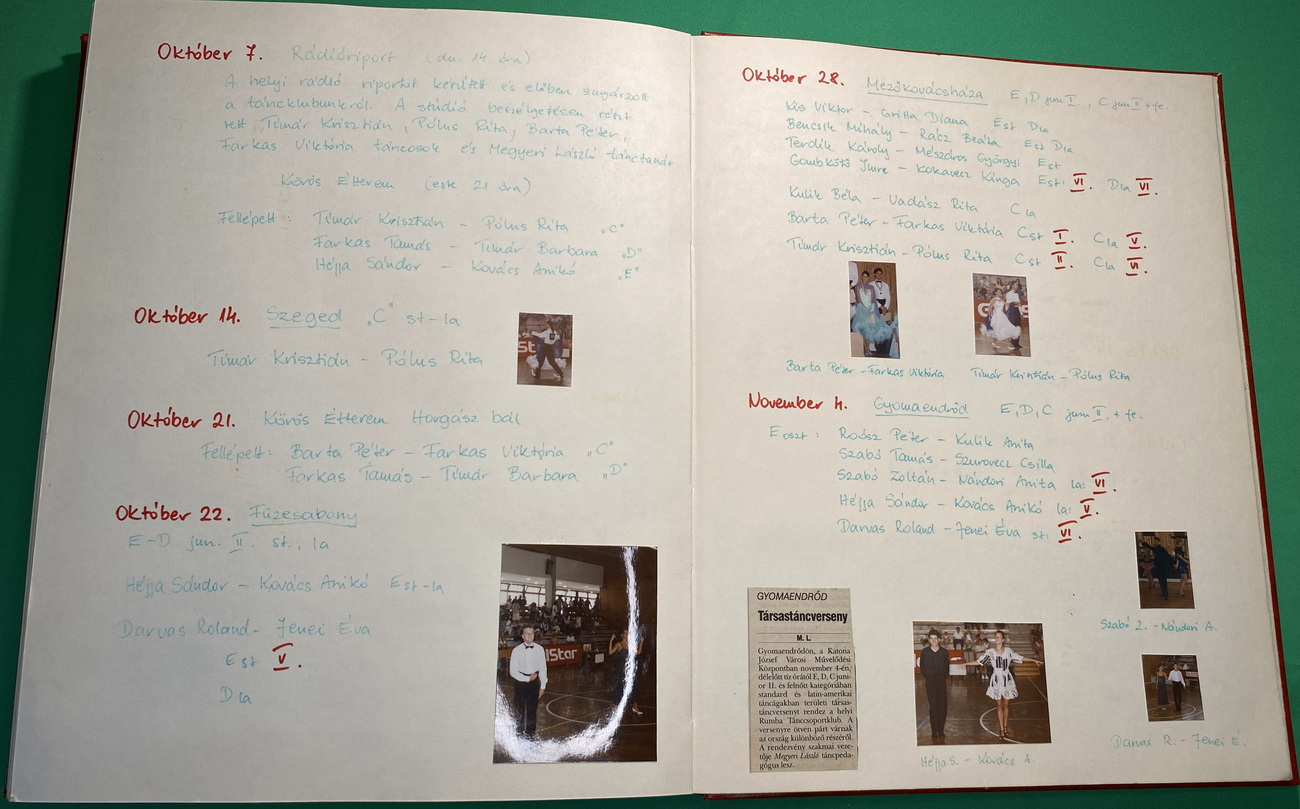 Október 7. Rádióriport (du. 14 óra)
A helyi rádió riportot készített és élőben sugárzott
a táncklubunkról. A stúdió beszélgetésen részt
vett Tímár Krisztián, Pólus Rita, Barta Péter,
Farkas Viktória táncosok és Megyeri László tánctanár
Körös Étterem (este 21 óra)
Fellépett: Tímár Krisztián - Pólus Rita „C"
Farkas Tamás - Tímár Barbara „D"
Héjja Sándor - Kovács Anikó „E"
Október 14. Szeged „C" st-la
Tímár Krisztián - Pólus Rita
Október 21. Körös Étterem Horgász bál
Fellépett: Barta Péter - Farkas Viktória „C"
Farkas Tamás - Tímár Barbara „D"
Október 22. Füzesabony
E-D jun. II. st., la
Héjja Sándor - Kovács Anikó E st-la
Darvas Roland - Jenei Éva
E st V.
D la
Október 28. Mezőkovácsháza E, D jun I., C jun II + fe.
Kis Viktor - Gritta Diana Est Dla
Bencsik Mihály - Rácz Beáta Est Dla
Terdik Károly - Mészáros Györgyi Est
Gombkötő Imre - Kokavecz Kinga Est: VI. Dla VI.
Kulik Béla - Vadász Rita Cla
Barta Péter - Farkas Viktória Cst I. Cla V.
Tímár Krisztián - Pólus Rita Cst II. Cla VI.
Barta Péter - Farkas Viktória Tímár Krisztián - Pólus Rita
November 4. Gyomaendrőd E, D, C jun II. + fe.
E oszt: Roósz Péter - Kulik Anita
Szabó Tamás - Szurovecz Csilla
Szabó Zoltán - Nándori Anita la: VI.
Héjja Sándor - Kovács Anikó la: V.
Darvas Roland - Jenei Éva st: VI.
Szabó Z. - Nándori A.
GYOMAENDRŐD
Társastáncverseny
M. L.
Gyomaendrődön, a Katona
József Városi Művelődési
Központban november 4-én,
délelőtt tíz órától E, D, C juni-
or II. és felnőtt kategóriában
standard és latin-amerikai
táncágakban területi társas-
táncversenyt rendez a helyi
Rumba Tánccsoportklub. A
versenyre ötven párt várnak
az ország különböző részéről.
A rendezvény szakmai veze-
tője Megyeri László táncpeda-
gógus lesz.
Héjja S. - Kovács A.
Darvas R. - Jenei É.